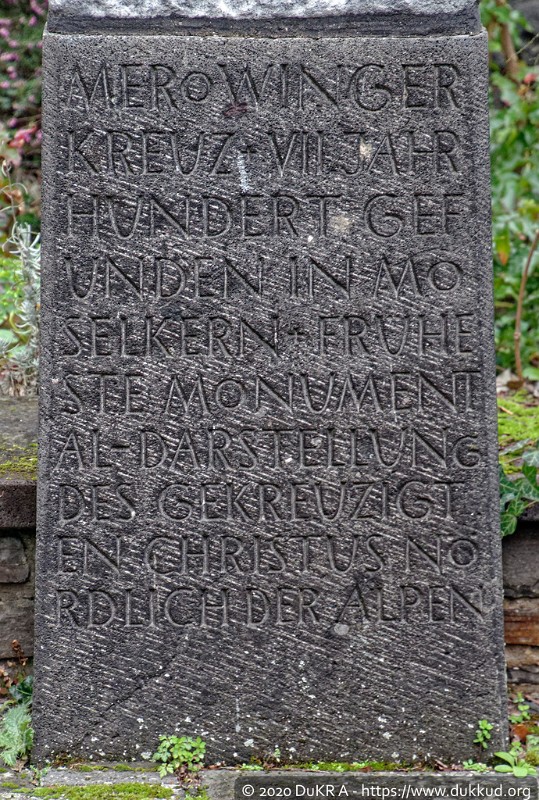 MEROWINGER
KREUZ + VII. JAHR
HUNDERT GEF
UNDEN IN MO
SELKERN + FRÜHE
STE MONUMENT
AL-DARSTELLUNG
DES GEKREUZIGT
EN CHRISTUS NÖ
RDLICH DER ALPEN
© 2020 DuKRA - https://www.dukkud.org